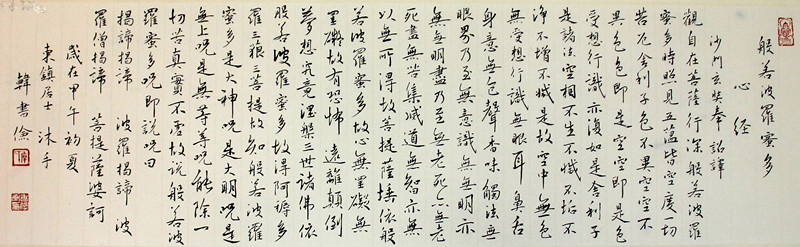 般若波羅蜜多
心經
沙門玄奘奉 詔譯
觀自在菩薩行深般若波羅
蜜多時照見五蘊皆空度一切
苦厄舍利子色不異空空不
異色色即是空空即是色
受想行識亦復如是舍利子
是諸法空相不生不滅不垢不
淨不增不減是故空中無色
無受想行識無眼耳 鼻舌
身意無色聲香味觸法無
眼界乃至無意識無無明亦
無無明盡乃至無老死亦無老
死盡無苦集滅道無智亦無
以無所得故菩提薩埵依般
若波羅蜜多故心無罣礙無
罣礙故有恐怖 遠離顛倒
夢想究竟涅槃三世諸佛依
般若波羅蜜多故得阿耨多
羅三藐三菩提故知般若波羅
蜜多是大神咒是大明咒是
無上咒是無等等咒能除一
切苦真實不虛故說般若波
羅蜜多咒即說咒曰
揭諦揭諦 波羅揭諦 波
羅僧揭諦 菩提薩婆訶
歲在甲午初夏
東鎮居士 沐手
韓書